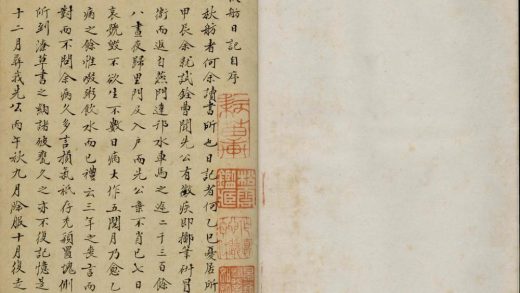 秋舫日記自序
秋舫者何余讀書所也日記者何乙巳憂居所
甲辰余就試銓曹聞先公有微疾即擲筆研冒
衝而返自燕門達邗水車馬之途二千三百餘
八晝夜歸里門及入戶而先公棄不肖已七日
哀號毀不欲生不數日病大作五閱月乃愈乙
病之餘唯啜粥飲水而已禮云三年之喪言而
對而不問余病久多言損氣祇仔禿穎置硯側
所到潦草書之綯諸破甕久之亦不復記憶是
十二月葬我先公丙午秋九月除服十月復走